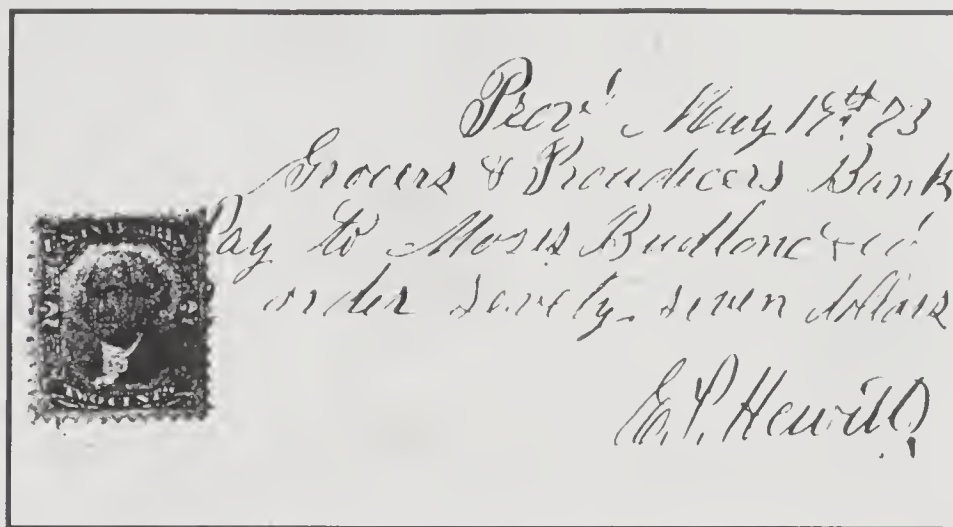 Prov. May 17th 73
Grocers & Prouducers Bank
Pay to Moses Budlond & Co
order Sevety-seven dollars
E. P. Hewitt
U.S. INTER. REV.
2 2
TWO CENTS